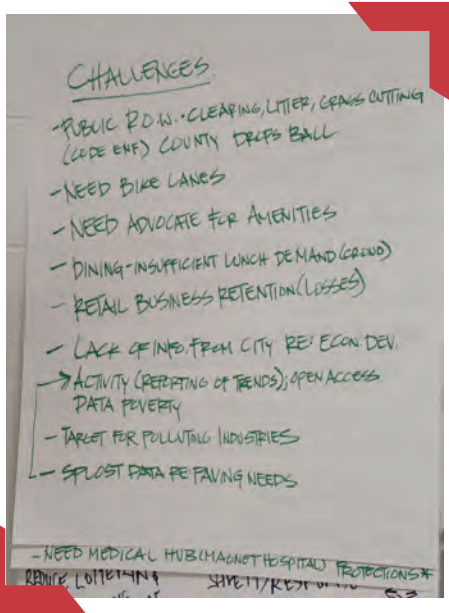 CHALLENGES
- PUBLIC R.O.W. - CLEARING, LITTER, GRASS CUTTING
(CODE ENF) COUNTY DROPS BALL
- NEED BIKE LANES
- NEED ADVOCATE FOR AMENITIES
- DINING - INSUFFICIENT LUNCH DEMAND (CROWD)
- RETAIL BUSINESS RETENTION (LOSSES)
- LACK OF INFO. FROM CITY RE: ECON. DEV.
→ ACTIVITY (REPORTING OF TRENDS); OPEN ACCESS
DATA POVERTY
- TARGET FOR POLLUTING INDUSTRIES
- SPLOST DATA RE: PAVING NEEDS
- NEED MEDICAL HUB (MAGNET HOSPITAL) PROTECTIONS*
REDUCE LOITERING